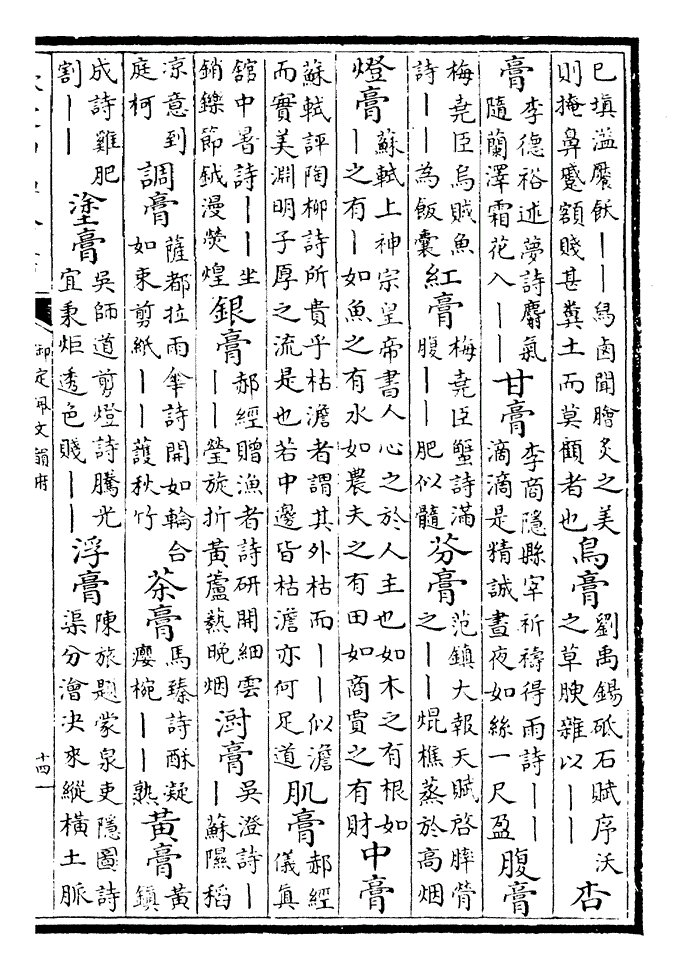 已填溢饜飫――舄鹵聞膾炙之美則掩鼻蹙額賤甚糞土而莫顧者也烏膏劉禹錫砥石賦序沃之草腴雜以――杏
膏李德裕述夢詩麝氣隨蘭澤霜花入――甘膏李商隱縣宰祈禱得雨詩――滴滴是精誠晝夜如絲一尺盈腹膏
梅堯臣烏賊魚詩――為飯囊紅膏梅堯臣蟹詩滿腹――肥似髓芬膏范鎮大報天賦啓膟膋之――焜樵蒸於高烟
燈膏蘇軾上神宗皇帝書人心之於人主也如木之有根如―之有―如魚之有水如農夫之有田如商賈之有財中膏
蘇軾評陶柳詩所貴乎枯澹者謂其外枯而――似澹而實美淵明子厚之流是也若中邊皆枯澹亦何足道肌膏郝經儀真
舘中暑詩――坐銷鑠節鉞漫熒煌銀膏郝經贈漁者詩研開細雲――瑩旋折黃蘆爇晚烟澍膏吳澄詩――蘇隰稻
涼意到庭柯調膏薩都拉雨傘詩開如輪合如束剪紙――護秋竹茶膏馬臻詩酥凝癭椀――熟黃膏黃鎮
成詩雞肥割――塗膏吳師道剪燈詩騰光宜秉炬透色賤――浮膏陳旅題蒙泉吏隱圖詩渠分澮决來縱橫土脈
御定佩文韻府
十四